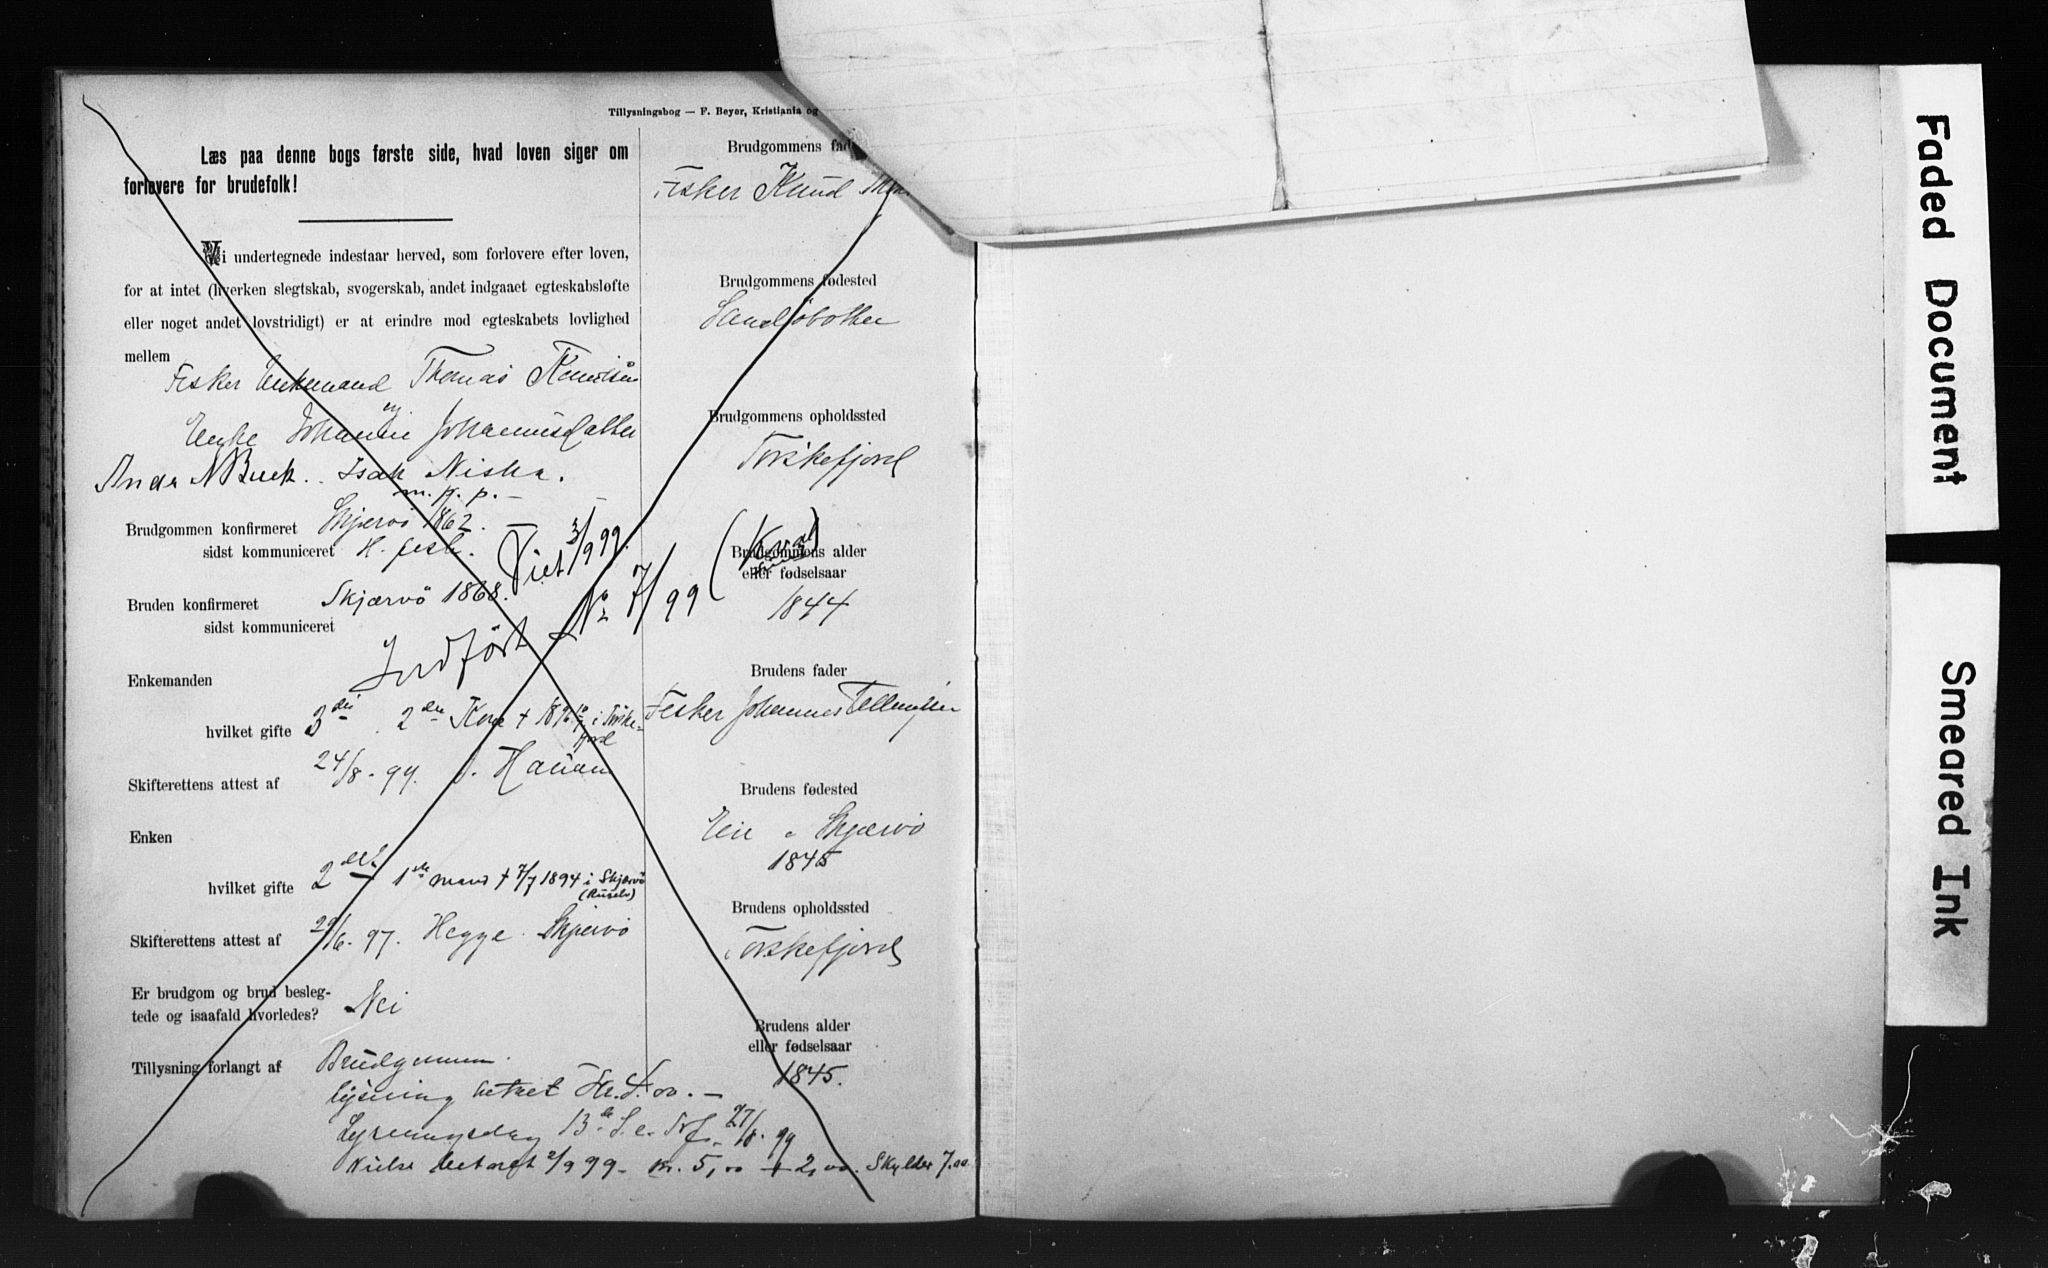 Tillysningsbog — F. Beyer, Kristiania og
Læs paa denne bogs første side, hvad loven siger om
forlovere for brudefolk!
Vi undertegnede indestaar herved, som forlovere efter loven,
for at intet (hverken slegtskab, svogerskab, andet indgaaet egteskabsløfte
eller noget andet lovstridigt) er at erindre mod egteskabets lovlighed
mellem
Fisker Enkemand Thomas Knudsen
og
Enke Johanne Johannesdatter
Anders N Buck. Isak Niska.
m. p. p.
Brudgommen konfirmeret Skjervö 1862.
sidst kommuniceret H. flest.
Viet 3/9 99.
Bruden konfirmeret Skjærvö 1868.
sidst kommuniceret
Indført No 7/99
Enkemanden
hvilket gifte 3die 2den Kone + 1896 i Torske-
fjord
Skifterettens attest af 24/8 - 99.
Enken
hvilket gifte 2det 1ste mand + 7/7 1894 i Skjærvö
Skifterettens attest af 29/6. 97. Hegge. Skjervö
Er brudgom og brud besleg-
tede og isaafald hvorledes? Nei
Tillysning forlangt af Brudgommen.
lysning betalt Kr. 4.00. —
Lysningsdag 13de S. e. Trf. 27/8. 99
betaget 2/9 99 - kr. 5,00 + 2,00. Skylder 7.00
Brudgommens fad
Fisker Knud
Brudgommens fødested
Sandöbotten
Brudgommens opholdssted
Torskefjord
Brudgommens alder
eller fødselsaar
1844
Brudens fader
Fisker Johannes Tellefsen
Brudens fødested
Skjærvö
1845
Brudens opholdssted
Torskefjord
Brudens alder
eller fødselsaar
1845.
Faded Document
Smeared Ink